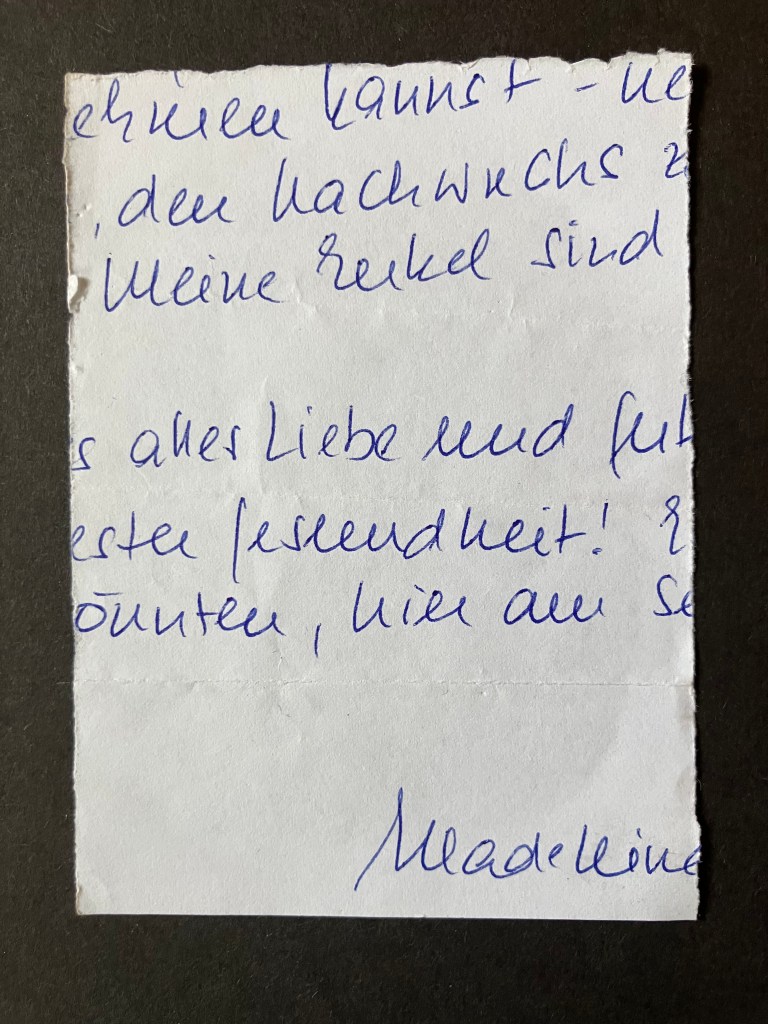 ehmen kannst - ne
, den Nachwuchs z
Meine Enkel sind
s alles Liebe und Gut
ester Gesundheit! E
önnten, hier am Se
Madeleine